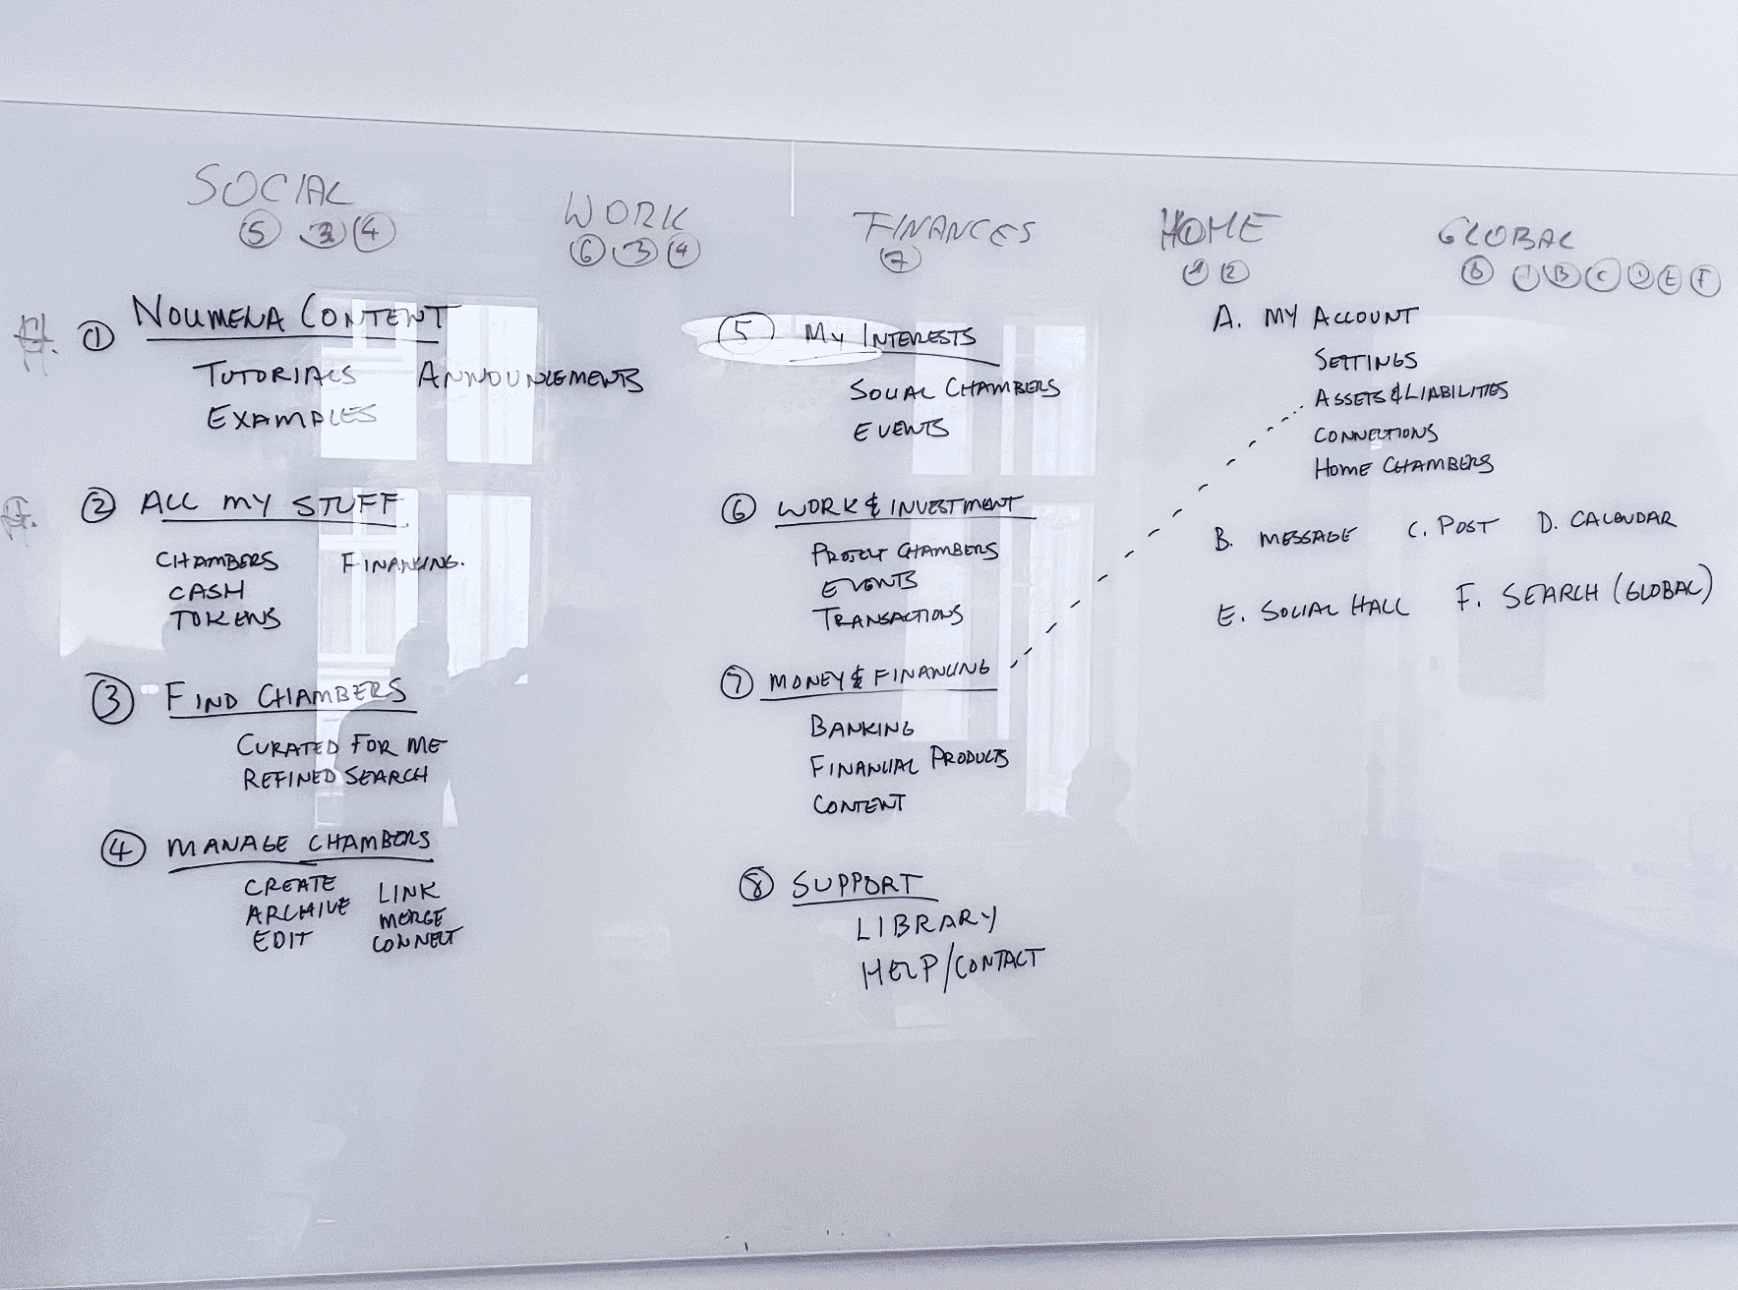 SOCIAL
5 3 4
WORK
6 3 4
FINANCES
7
HOME
1 2
GLOBAL
8 B C D E F
1 NOUMENA CONTENT
TUTORIALS ANNOUNCEMENTS
EXAMPLES
2 ALL MY STUFF
CHAMBERS FINANCING.
CASH
TOKENS
3 FIND CHAMBERS
CURATED FOR ME
REFINED SEARCH
4 MANAGE CHAMBERS
CREATE LINK
ARCHIVE MERGE
EDIT CONNECT
5 MY INTERESTS
SOCIAL CHAMBERS
EVENTS
6 WORK & INVESTMENT
PROJECT CHAMBERS
EVENTS
TRANSACTIONS
7 MONEY & FINANCING
BANKING
FINANCIAL PRODUCTS
CONTENT
8 SUPPORT
LIBRARY
HELP/CONTACT
A. MY ACCOUNT
SETTINGS
ASSETS & LIABILITIES
CONNECTIONS
HOME CHAMBERS
B. MESSAGE C. POST D. CALENDAR
E. SOCIAL HALL F. SEARCH (GLOBAL)